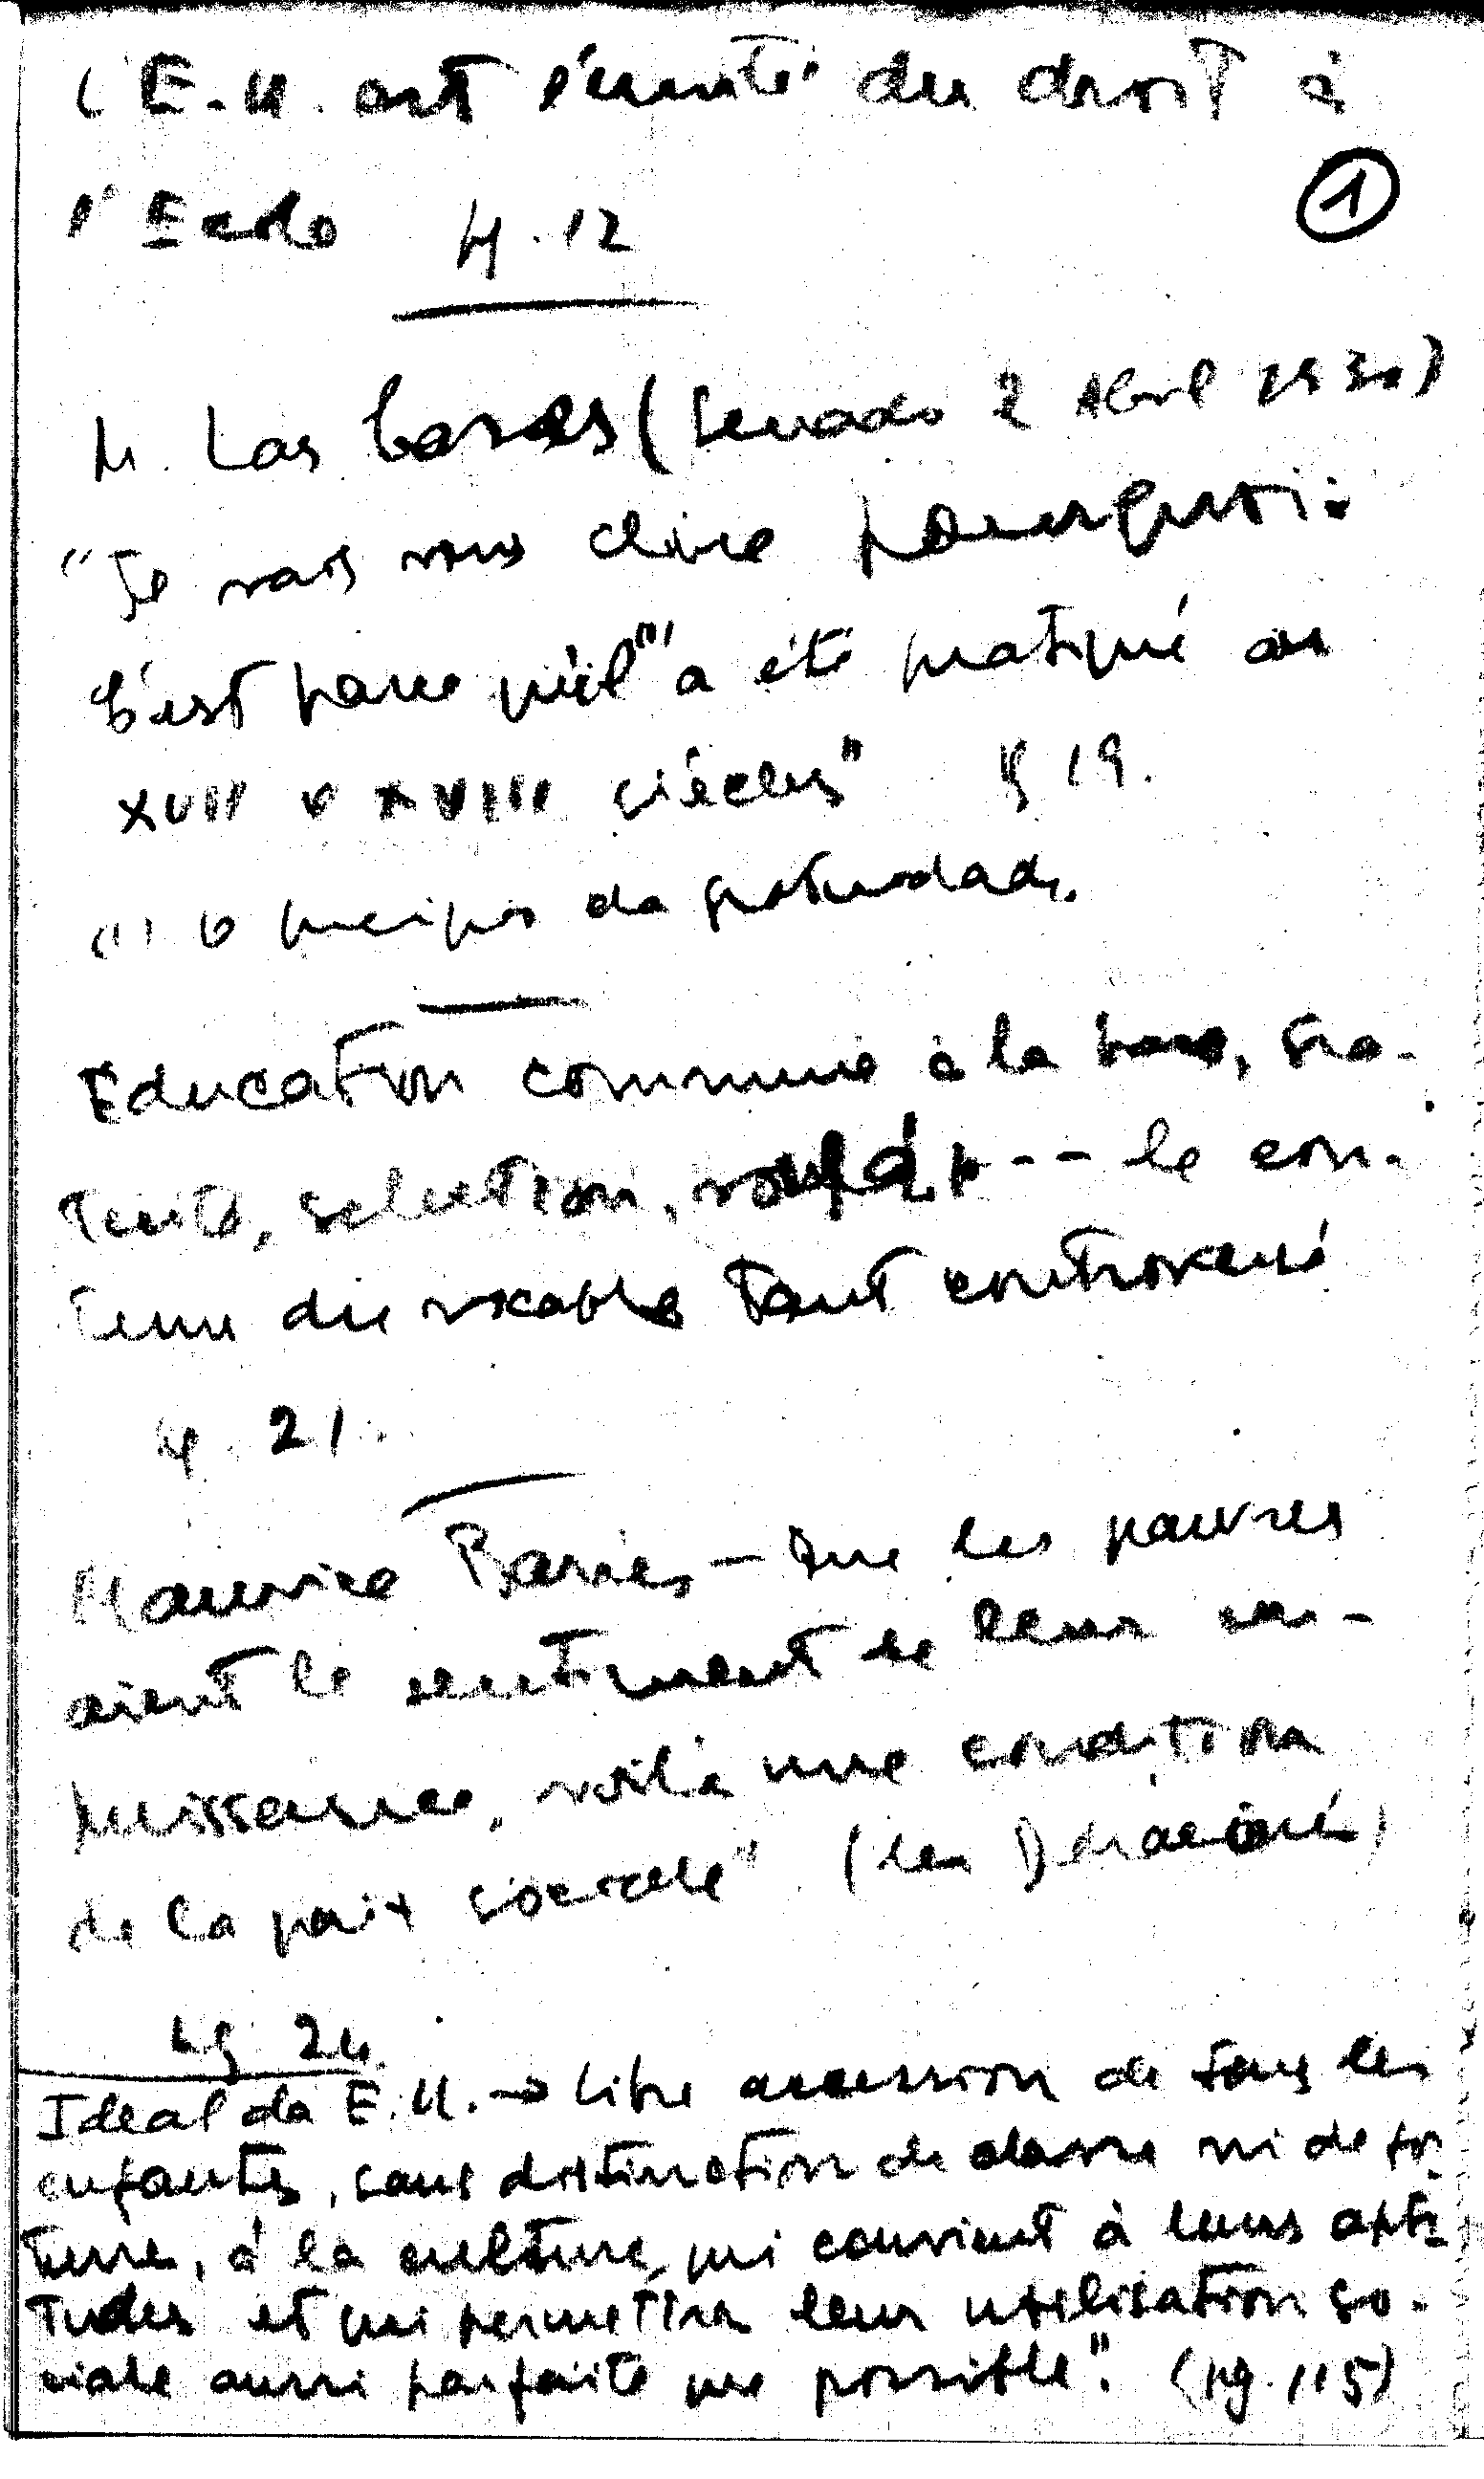 L'E.U. est l'unité du droit à
l'Ecole 4.12
1
M. Las Cases (Senado 2 Abril 1930)
"Je vais vous dire pourquoi:
C'est parce qu'il (1) a été pratiqué au
XVII e XVIII siècles" pg 19.
(1) o principio da gratuidade.
Education commune à la base, gra-
tuité, sélection, le con-
tenu du vocable tant controversé
pg. 21.
Maurice Barrès - Que les pauvres
aient le sentiment de leur im-
puissance, voilà une condition
de la paix sociale" (les Déraciné)
pg. 24.
Ideal da E.U. → Libre accession de tous les
enfants, sans distinction de classe ni de for
tune, à la culture qui convient à leurs apti
tudes et qui permettra leur utilisation so-
ciale aussi parfaite que possible". (pg. 115)